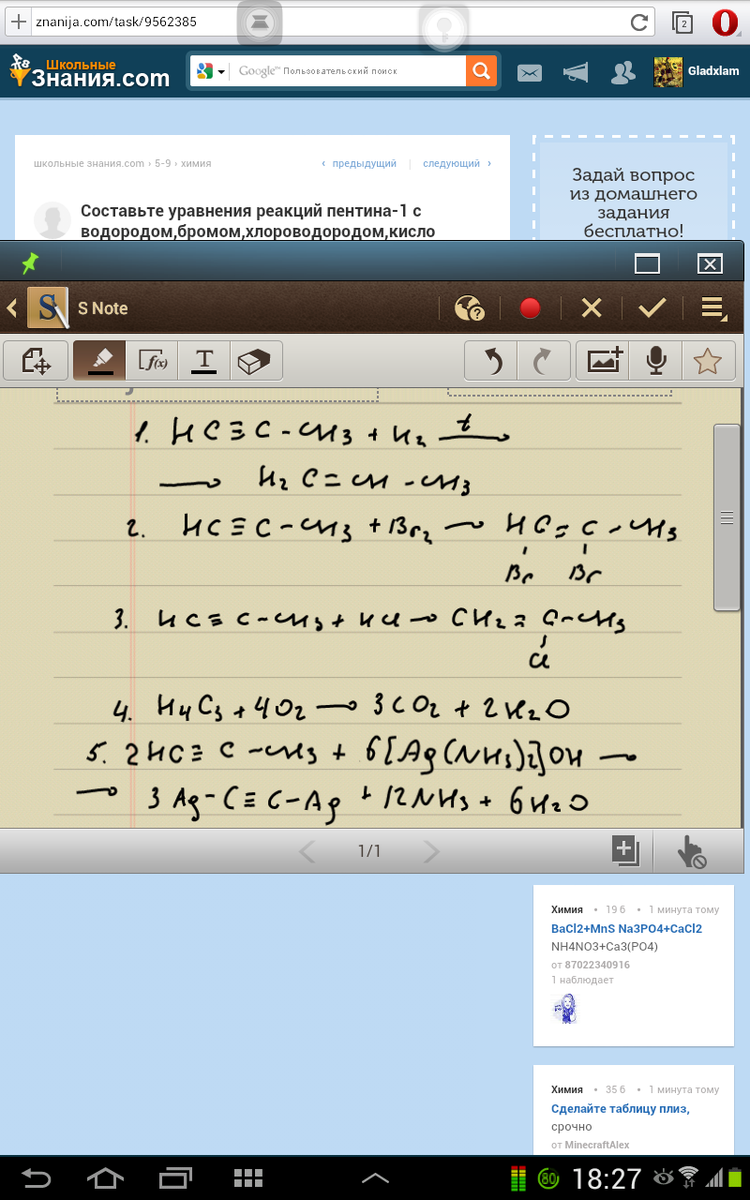 znanija.com/task/9562385
2
Школьные
Знания.com
Google™ Пользовательский поиск
Gladxlam
школьные знания.com › 5-9 › химия
‹ предыдущий | следующий ›
Составьте уравнения реакций пентина-1 с
водородом,бромом,хлороводородом,кисло
Задай вопрос
из домашнего
задания
бесплатно!
S Note
f(x)
T
1. HC≡C-CH3 + H2 t→
→ H2C=CH-CH3
2. HC≡C-CH3 + Br2 → HC=C-CH3
Br Br
3. HC≡C-CH3 + HCl → CH2=C-CH3
Cl
4. H4C3 + 4O2 → 3CO2 + 2H2O
5. 2HC≡C-CH3 + 6[Ag(NH3)2]OH →
→ 3Ag-C≡C-Ag + 12NH3 + 6H2O
1/1
Химия • 19 б • 1 минута тому
BaCl2+MnS Na3PO4+CaCl2
NH4NO3+Ca3(PO4)
от 87022340916
1 наблюдает
Химия • 35 б • 1 минута тому
Сделайте таблицу плиз,
срочно
от MinecraftAlex
80
18:27